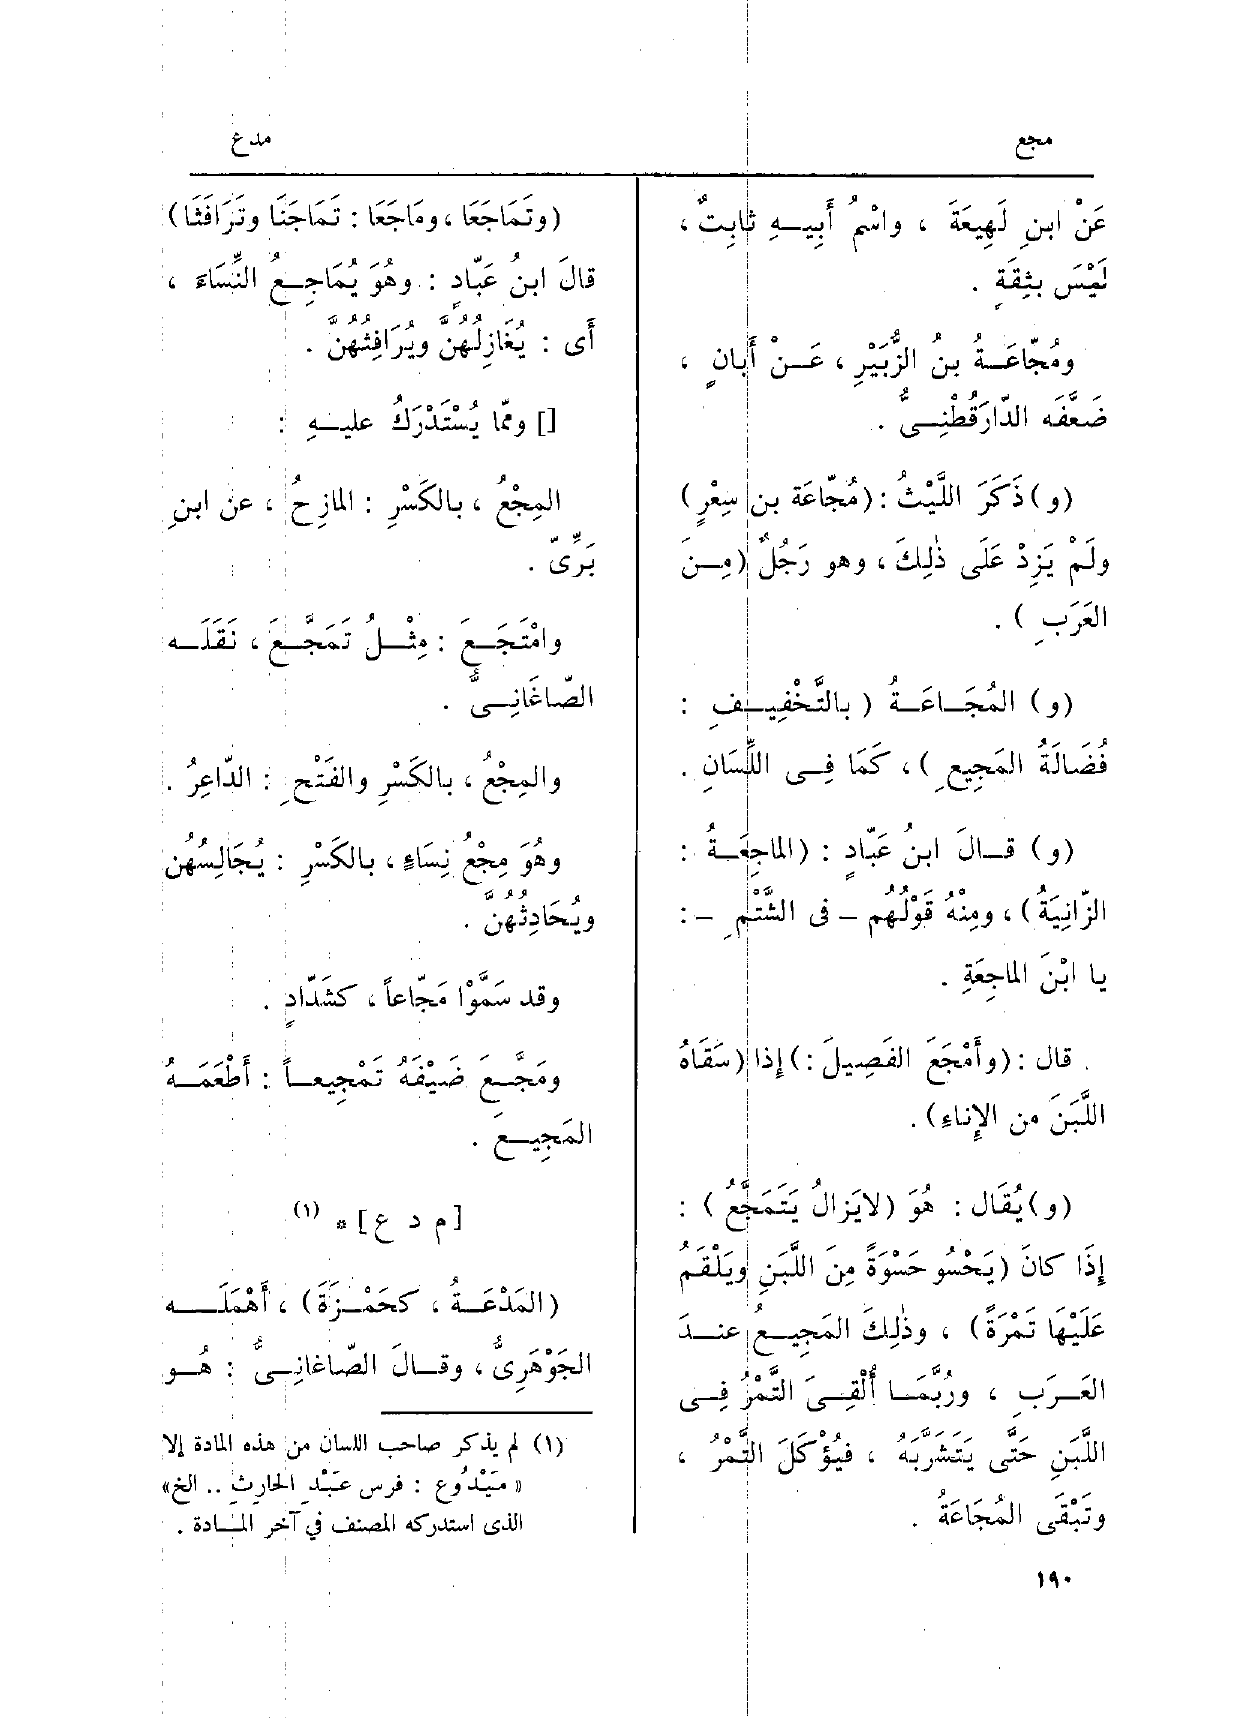 مجع
مدع
عَنْ ابنِ لَهِيعَةَ ، واسْمُ أَبِيـهِ ثابِتٌ ،
لَيْسَ بثِقَةٍ .
ومُجّاعَـةُ بنُ الزُّبَيْرِ ، عَـنْ أَبانٍ ،
ضَعَّفَه الدّارَقُطْنِـىُّ .
(و) ذَكَرَ اللَّيْثُ : (مُجّاعَة بن سِعْرٍ)
ولَمْ يَزِدْ عَلَى ذٰلِكَ ، وهو رَجُلٌ (مِـنَ
العَرَبِ ) .
(و) المُجَـاعَـةُ ( بالتَّخْفِيـفِ :
فُضَالَةُ المَجِيعِ ) ، كَمَا فِـى اللِّسَانِ .
(و) قـالَ ابنُ عَبّادٍ : (الماجِعَـةُ :
الزّانِيَةُ) ، ومِنْهُ قَوْلُهُم – فى الشَّتْمِ – :
يا ابْنَ الماجِعَةِ .
قال : (وأَمْجَعَ الفَصِيلَ :) إِذا (سَقَاهُ
اللَّبَنَ من الإِناءِ) .
(و) يُقَال : هُوَ (لايَزالُ يَتَمَجَّعُ ) :
إِذَا كانَ (يَحْسُو حَسْوَةً مِنَ اللَّبَنِ ويَلْقَمُ
عَلَيْهَا تَمْرَةً) ، وذٰلِكَ المَجِيـعُ عنـدَ
العَـرَبِ ، ورُبَّمَـا أُلْقِـىَ التَّمْرُ فِـى
اللَّبَنِ حَتَّى يَتَشَرَّبَهُ ، فيُؤْكَلَ التَّمْرُ ،
وتَبْقَى المُجَاعَةُ .
(وتَمَاجَعَا ، ومَاجَعَا : تَمَاجَنَا وتَرَافَثَا)
قالَ ابنُ عَبّادٍ : وهُوَ يُمَاجِـعُ النِّسَاءَ ،
أَى : يُغَازِلُهُنَّ ويُرَافِثُهُنَّ .
[] وممّا يُسْتَدْرَكُ عليـهِ :
المِجْعُ ، بالكَسْرِ : المازِحُ ، عن ابنِ
بَرِّىّ .
وامْتَجَـعَ : مِثْـلُ تَمَجَّـعَ ، نَقَلَـه
الصّاغَانِـىُّ .
والمِجْعُ ، بالكَسْرِ والفَتْحِ : الدّاعِرُ .
وهُوَ مِجْعُ نِسَاءٍ ، بالكَسْرِ : يُجَالِسُهُن
ويُحَادِثُهُنَّ .
وقد سَمَّوْا مَجّاعاً ، كشَدّادٍ .
ومَجَّـعَ ضَيْفَهُ تَمْجِيعـاً : أَطْعَمَـهُ
المَجِيـعَ .
[م د ع] * (١)
(المَدْعَـةُ ، كحَمْـزَةَ) ، أَهْمَلَـه
الجَوْهَرِىُّ ، وقـالَ الصّاغانِـىُّ : هُـو
(١) لم يذكر صاحب اللسان من هذه المادة إلا
« مَيْدُوع : فرس عبْدِ الحارِثِ .. الخ»
الذى استدركه المصنف في آخر المـادة .
١٩٠